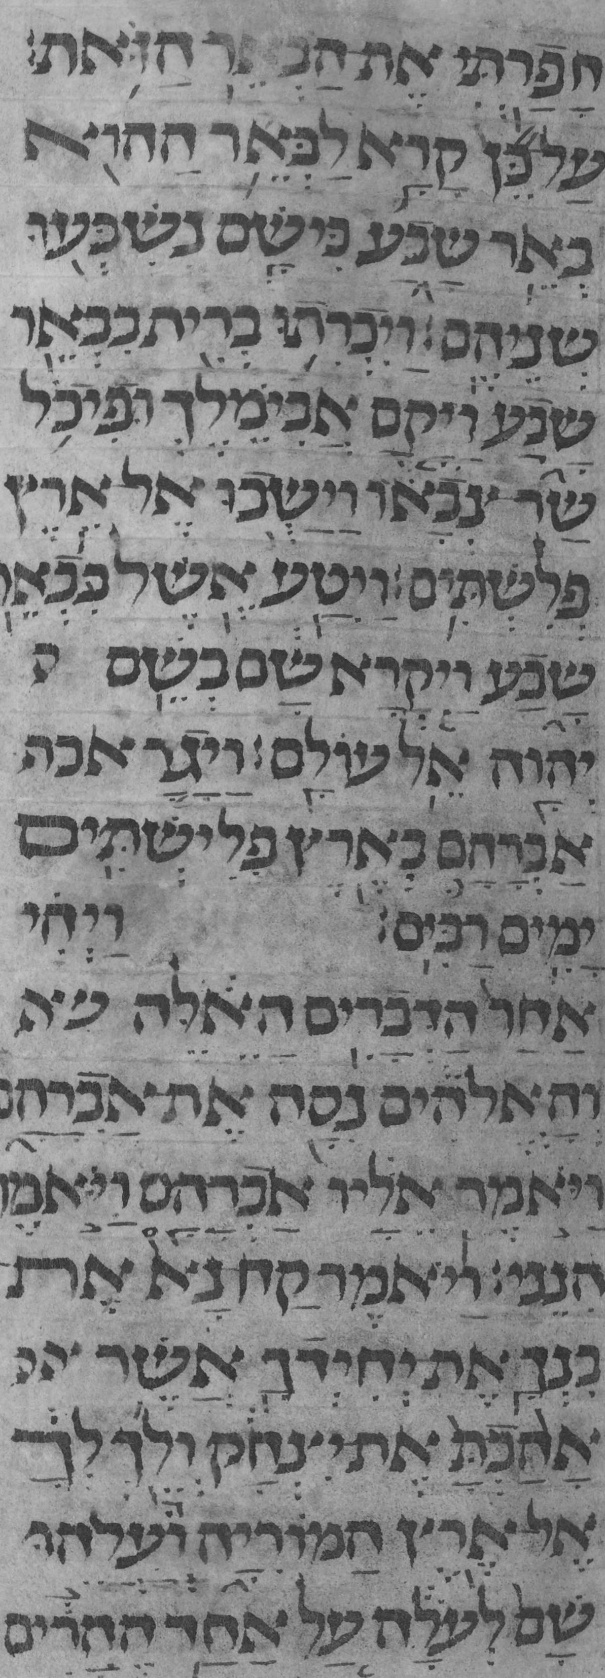 חפרתי את הבאר הזאת׃
על כן קרא לבאר ההוא
באר שבע כי שם נשבעו
שניהם׃ ויכרתו ברית בבאר
שבע ויקם אבימלך ופיכל
שר צבאו וישבו אל ארץ
פלשתים׃ ויטע אשל בבאר
שבע ויקרא שם בשם
יהוה אל עולם׃ ויגר א
אברהם בארץ פלישתים
ימים רבים׃ ויהי
אחר הדברים האלה
והאלהים נסה את אברהם
ויאמר אליו אברהם ויאמר
הנני׃ ויאמר קח נא את
בנך את יחידך אשר
אהבת את יצחק ולך לך
אל ארץ המוריה והעלהו
שם לעלה על אחד ההרים